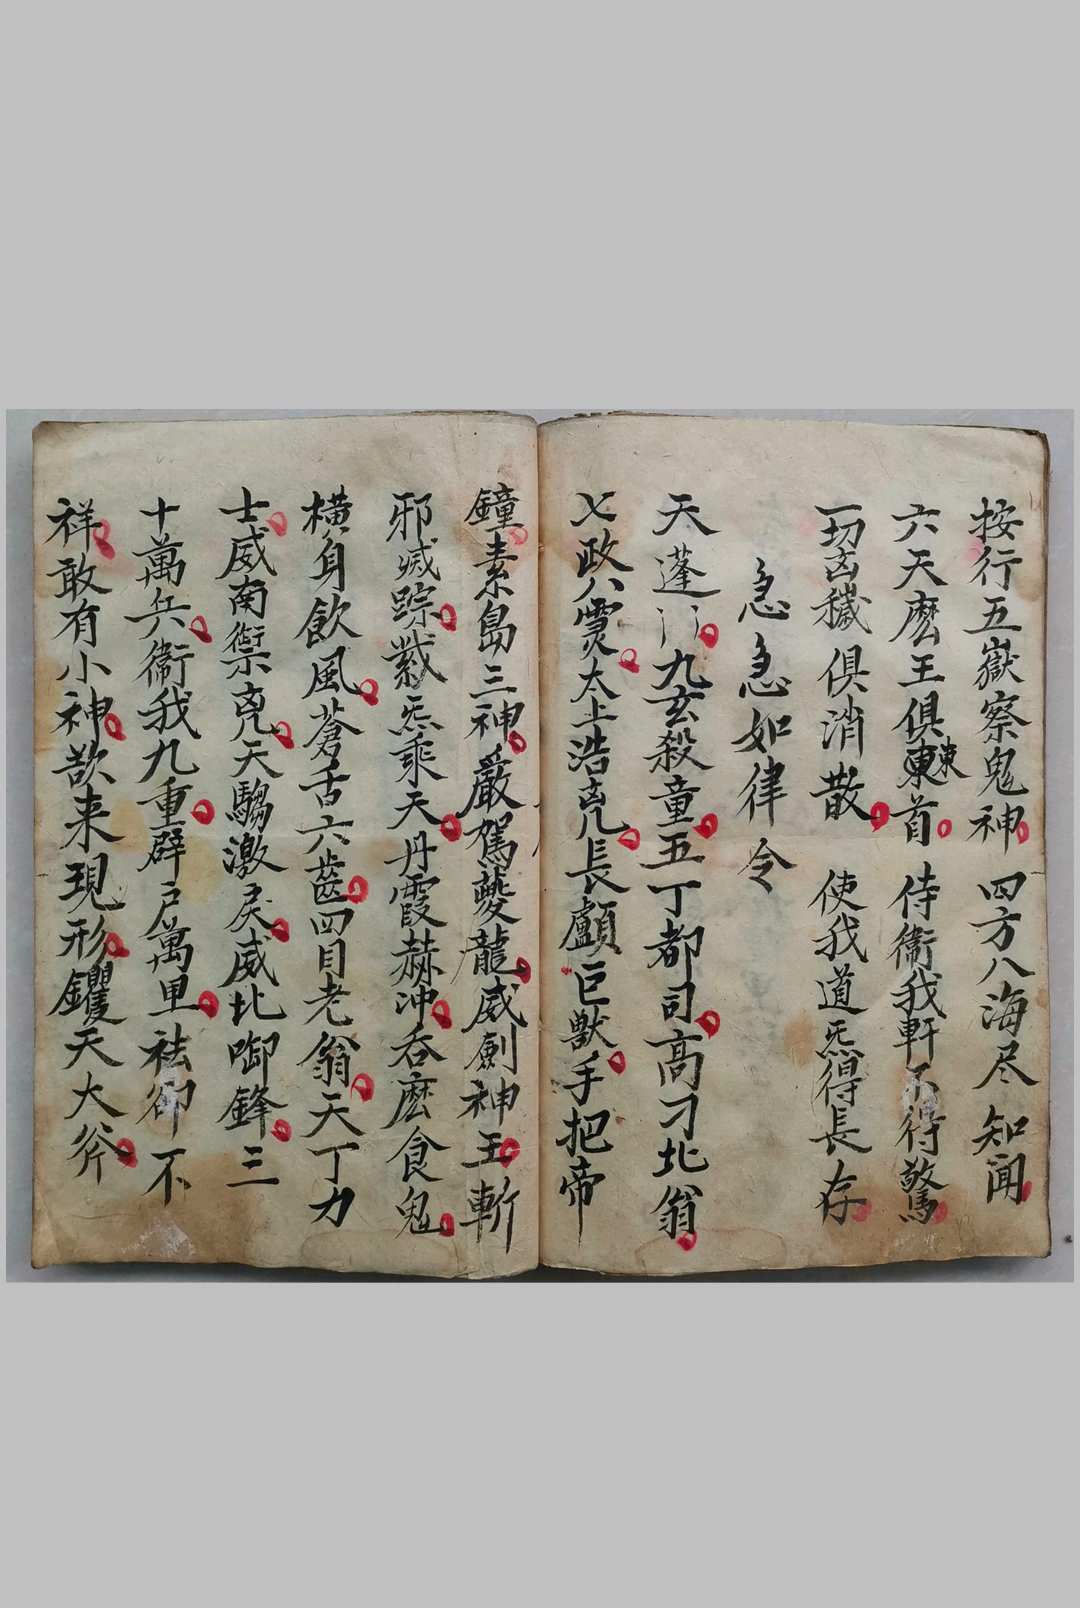 按行五嶽察鬼神四方八海尽知聞
六天麽王俱東東首侍衛我軒不得驚
一切凶穢俱消散使我道炁得長存
急急如律令
天蓬九玄殺童五丁都司高刁北翁
七政八霛太上浩凶長顱巨獸手把帝
鐘素島三神嚴駕夔龍威劍神王斬
邪滅踪紫炁乘天丹霞赫冲吞麽食鬼
橫身飲風蒼舌六齒四目老翁天丁力
士威南禦兇天騶激戾威北啣鋒三
十萬兵衛我九重辟尸萬里袪卻不
祥敢有小神欲来現形钁天大斧